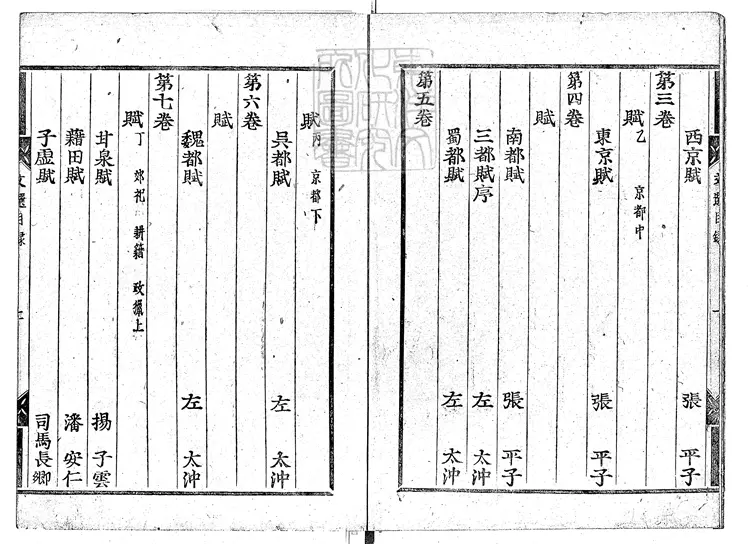 西京賦 張平子
第三卷
賦乙 京都中
東京賦 張平子
第四卷
賦
南都賦 張平子
三都賦序 左太沖
蜀都賦 左太沖
第五卷
賦丙 京都下
吳都賦 左太沖
第六卷
賦
魏都賦 左太沖
第七卷
賦丁 郊祀 耕籍 畋獵上
甘泉賦 揚子雲
藉田賦 潘安仁
子虛賦 司馬長卿
文選目錄